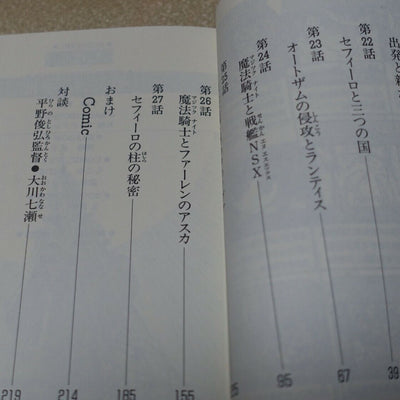 出発と新
第22話
セフィーロと三つの国
39
第23話
オートザムの侵攻とランティス
67
第24話
魔法騎士と戦艦NSX
95
第25話
第26話
魔法騎士とファーレンのアスカ
155
第27話
セフィーロの柱の秘密
185
おまけ
Comic
214
対談
平野俊弘監督●大川七瀬
219